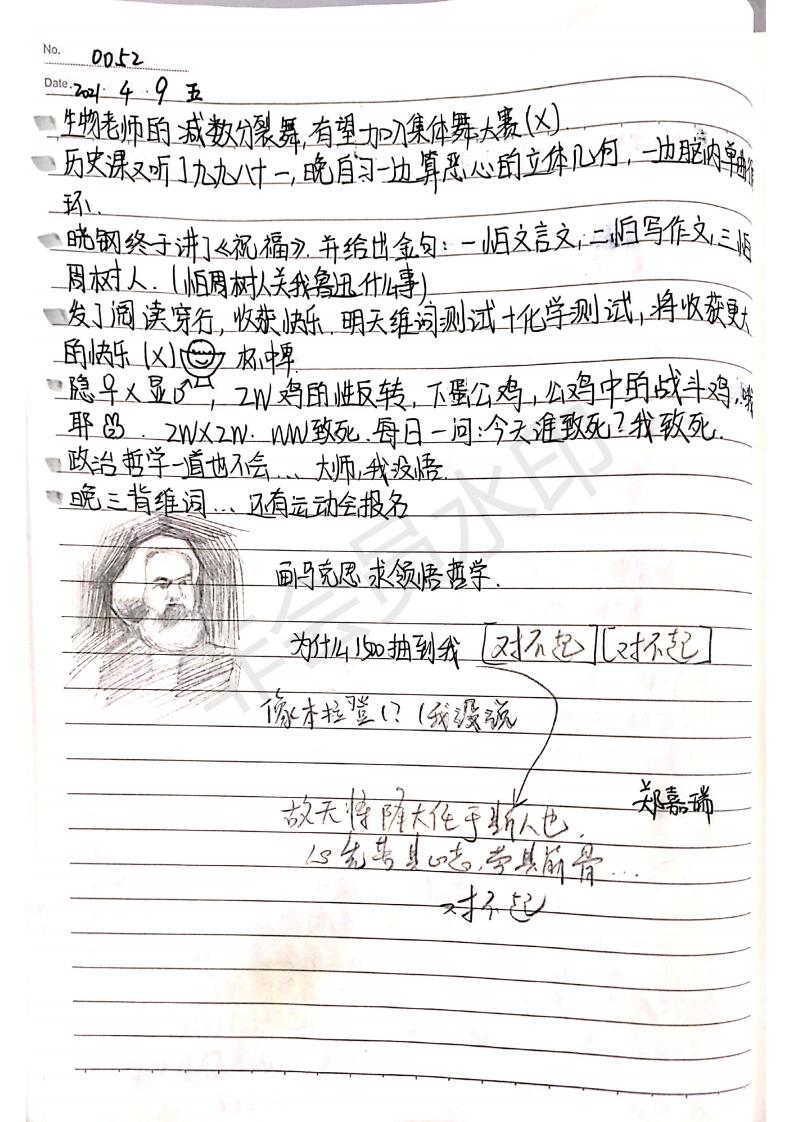 No. 0052
Date. 2021. 4. 9 五
生物老师的减数分裂舞,有望加入集体舞大赛(X)
历史课又听了九九八十一,晚自习一边算恶心的立体几何,一边脑内单曲循
环.
晓钢终于讲了《祝福》.并给出金句:一怕文言文,二怕写作文,三怕
周树人.(怕周树人关我鲁迅什么事)
发了阅读穿行,收获快乐.明天维词测试+化学测试,将收获更大
的快乐(X) 杯中
隐♀X显♂,ZW鸡的性反转,下蛋公鸡,公鸡中的战斗鸡,哦
耶 . ZWXZW. WW致死.每日一问:今天谁致死?我致死.
政治哲学一道也不会... 大师,我没悟.
晚三背维词...还有运动会报名
画马克思求领悟哲学.
为什么1500抽到我 [对不起][对不起]
像本拉登(?(我没说
郑嘉瑞
故天将降大任于斯人也.
必先苦其心志,劳其筋骨...
对不起
非会员水印